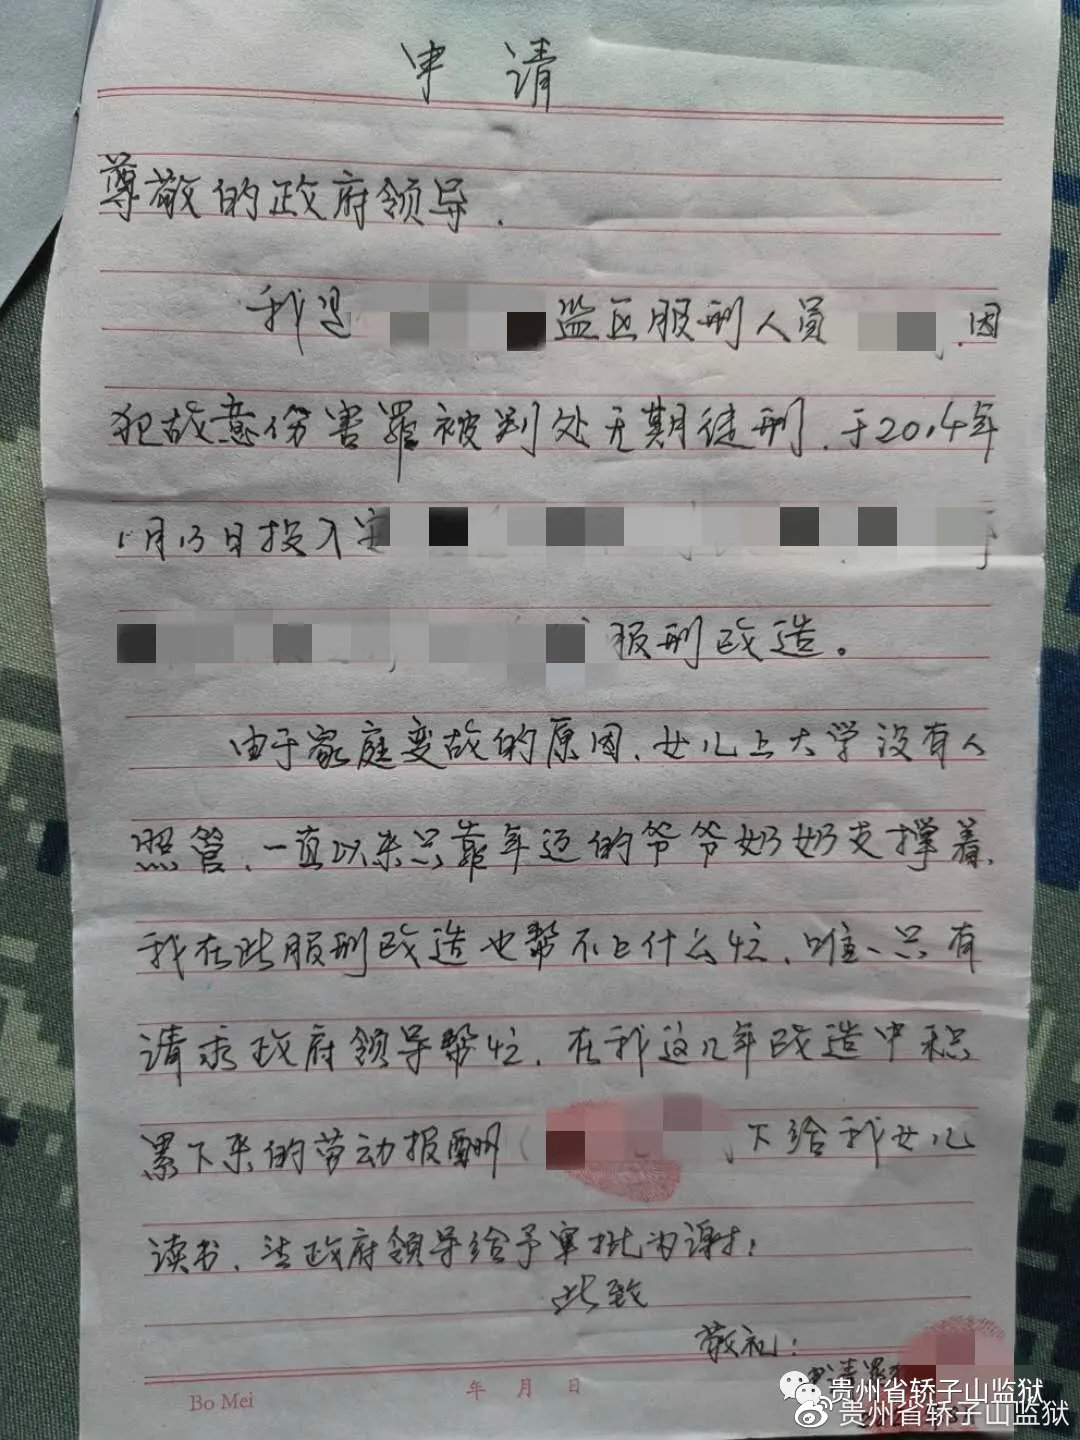 申 请
尊敬的政府领导.
我是 监区服刑人员 .因
犯故意伤害罪被判处无期徒刑.于2014年
1月13日投入
服刑改造。
由于家庭变故的原因.女儿上大学没有人
照管.一直以来只靠年迈的爷爷奶奶支撑着.
我在此服刑改造也帮不上什么忙.唯一只有
请求政府领导帮忙.在我这几年改造中积
累下来的劳动报酬( 下给我女儿
读书. 政府领导给予审批为谢!
此致
敬礼:
Bo Mei
年 月 日
贵州省轿子山监狱
贵州省轿子山监狱